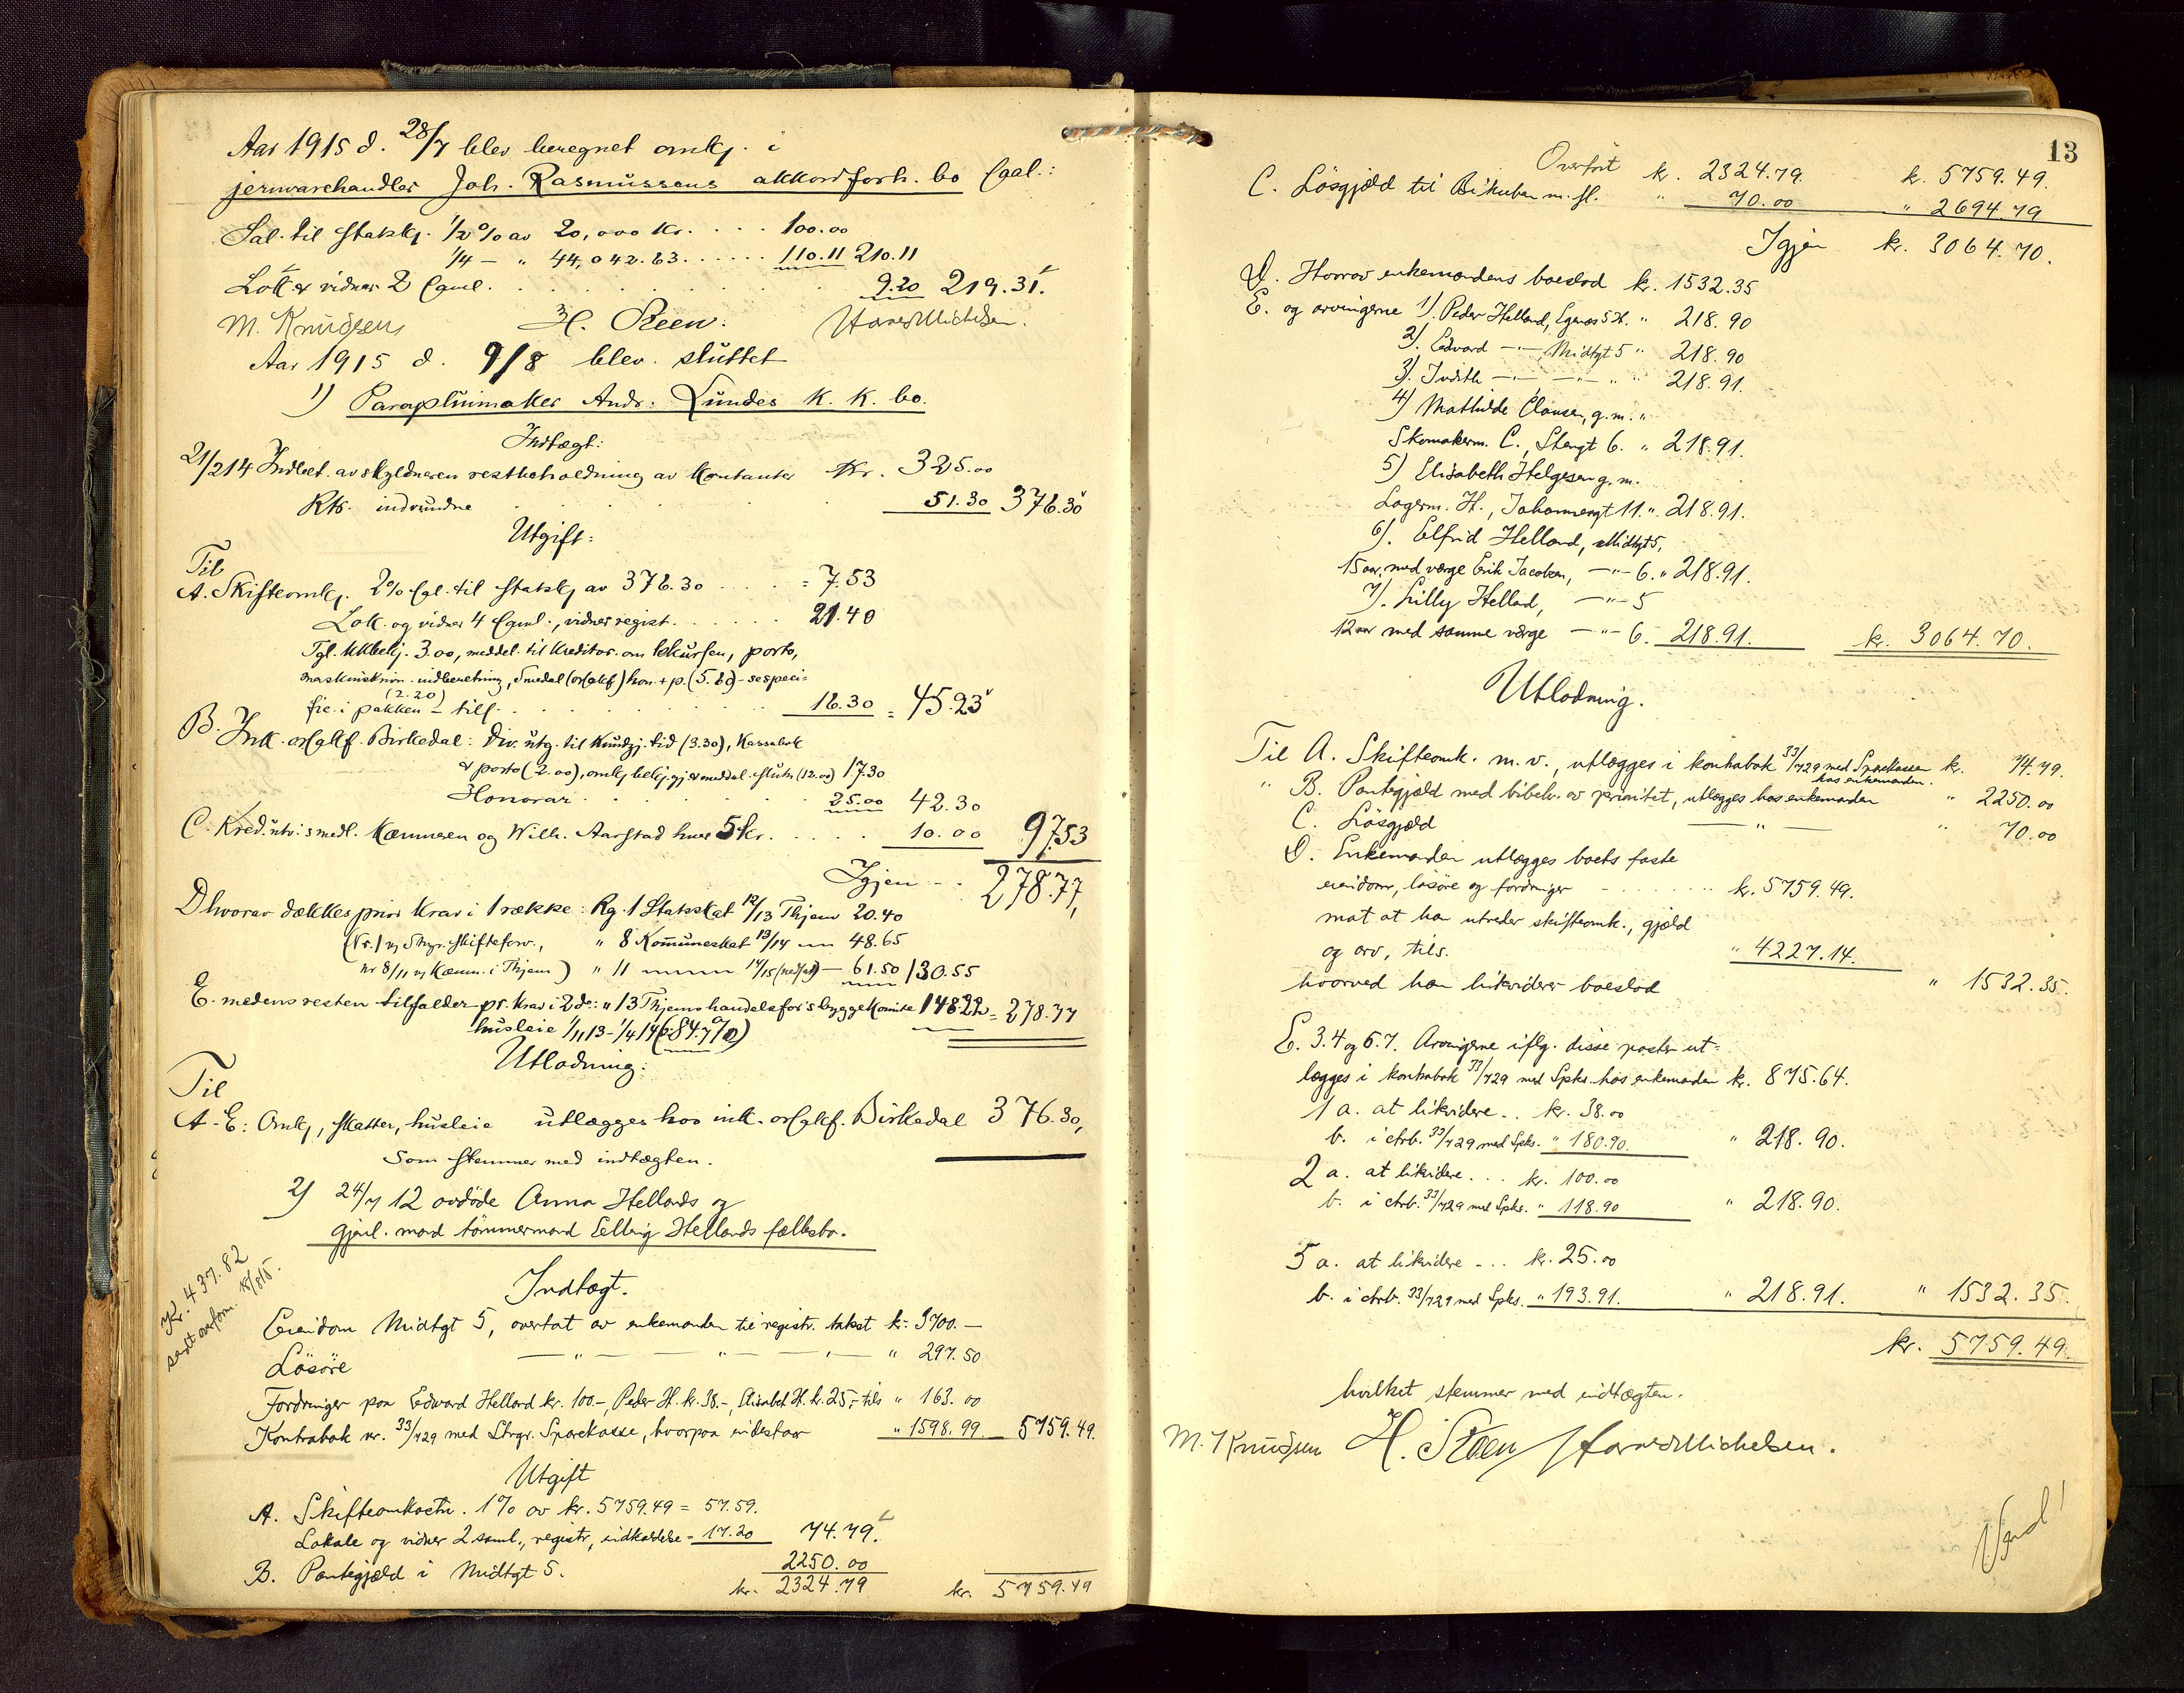 Aar 1915 d. 28/7 blev beregnet omkj. i
jernvarehandler Joh. Rasmussens akkordforh. bo
Sal. til statskj. 1/2 % av 20,000 kr. . . . . 100.00
1/4 — " 44,042.63 . . . . . . 110.11 210.11
Lok. er vidner 2 . . . . . 9.20 219.31.
M. Knudsen H. Steen.
Aar 1915 d. 9/8 blev sluttet
1) Parapluimaker Andr. Lundes k. k. bo.
Indtægt:
21/214 Indbet. av skyldneren restbeholdning av kontanter Kr. 325.00
Rts. indvundne 51.30 376.30
Utgift:
Til
A. Skifteomkj. 2% til statskj av 376.30 . . . = 7.53
Lok. og vidner 4 , vidner regist. . . . . . 21.40
Tgl. 3.00, meddel. til kreditor. om , porto,
(2.20)
fic. i pakken - till. . . . 16.30 = 45.23
B. Ink. Birkedal: Div. utg. til (3.30), Kassabok
& porto (2.00), (12.00) 17.30
Honorar . . . . . 25.00 42.30
C. Kred.utv: s medl. Kæmneren og Wilh. Aarstad hver 5 kr. . . . . 10.00 97.53
Igjen - . 278.77,
D hvorav dækkes prior krav i 1 række: Rg. 1 Statsskat 12/13 Thjem 20.40
" 8 Kommuneskat 13/14 — 48.65
nr 8/11 Kæmn. i Thjem) " 11 — 14/15 — 61.50 130.55
E. medens resten tilfalder pr. krav i 2 do: " 13 Thjems byggekomite 148.22 = 278.77
husleie 1/11 13 - 1/4 14
Utlodning:
Til
A-E: Omkj, skatter, husleie utlægges hos ink. Birkedal 376.30,
som stemmer med indtægten.
2) 24/7 12 avdöde Anna Hellands og
gjenl. mand tömmermand Hellands fællesbo.
Kr. 437.82
Indtægt.
Eiendom Midtgt 5, overtat av enkemanden til registr. takst kr. 3700. —
Lösöre — " — " — " — " 297.50
Fordringer paa Edvard Helland kr. 100.-, Peder H. kr. 38.-, Elisabet H. kr. 25,- tils " 163.00
Kontrabok nr. 33/729 med Sparekasse, hvorpaa indestaar " 1598.99 5759.49.
Utgift
A. Skifteomkostn. 1% av kr. 5759.49 = 57.59.
Lokale og vidner 2 saml., registr, indkaldelse = 17.20 74.79.
B. Pantegjæld i Midtgt 5. 2250.00
kr. 2324.79 kr. 5759.49
13
Overfört kr. 2324.79. kr. 5759.49.
C. Lösgjæld til Bikuben m. fl. " 70.00 " 2694.79
Igjen kr. 3064.70.
D. Hvorav enkemandens boeslod kr. 1532.35
E. og arvingerne 1). Peder Helland, " 218.90
2). Edvard —"—, Midtgt 5 " 218.90
3). Judith —"— —"— " 218.91.
4) Mathilde Clausen, g. m. "
Skomakerm. C., Stengt 6. " 218.91.
5) Elisabeth Helgesen g. m.
Lagerm. H., Johannesgt 11. " 218.91.
6). Elfrid Helland, Midtgt 5,
15 aar, med værge Erik Jacobsen, —"— 6. " 218.91.
7). Lilly Helland, —"— 5
12 aar med samme værge —"— 6. 218.91. kr. 3064.70.
Utlodning.
Til A. Skifteomk. m. v., utlægges i kontrabok 33/729 med Sparekassen kr. 74.79.
hos enkemanden.
" B. Pantegjæld med bibeh. av prioritet, utlægges hos enkemanden " 2250.00
C. Lösgjæld — " — " 70.00
D. Enkemanden utlægges boets faste
eiendom, lösöre og fordringer . . . . . kr. 5759.49.
mot at han utreder skifteomk., gjæld
og arv, tils. " 4227.14.
hvorved han likviderer boeslod " 1532.35.
E. 3.4 og 6.7. Arvingerne iflg. disse poster ut-
lægges i kontrabok 33/729 med Spks. hos enkemanden kr. 875.64.
1 a. at likvidere . . kr. 38.00
b. i ctrb. 33/729 med Spks. " 180.90. " 218.90.
2 a. at likvidere . . . kr. 100.00
b. i ctrb. 33/729 med Spks. " 118.90 " 218.90.
5 a. at likvidere - . . kr. 25.00
b. i ctrb. 33/729 med Spks. " 193.91. " 218.91. " 1532.35.
kr. 5759.49.
hvilket stemmer med indtægten.
M. Knudsen H. Steen Michelsen.
Vend!